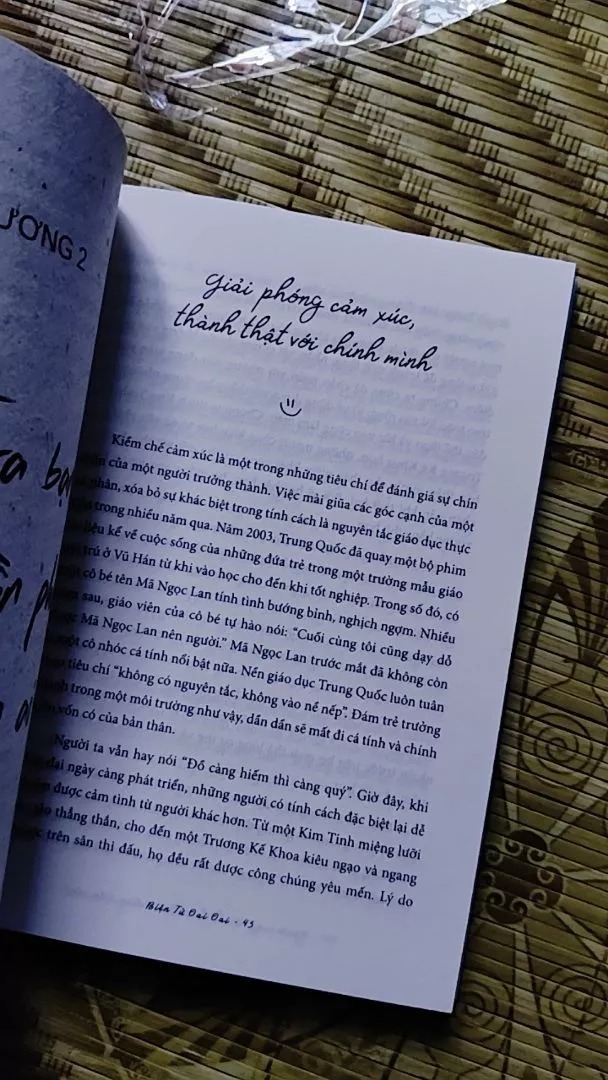 ƯƠNG 2
Giải phóng cảm xúc,
thành thật với chính mình
Kiềm chế cảm xúc là một trong những tiêu chí để đánh giá sự chín
của một người trưởng thành. Việc mài giũa các góc cạnh của một
nhân, xóa bỏ sự khác biệt trong tính cách là nguyên tắc giáo dục thực
trong nhiều năm qua. Năm 2003, Trung Quốc đã quay một bộ phim
liệu kể về cuộc sống của những đứa trẻ trong một trường mẫu giáo
trú ở Vũ Hán từ khi vào học cho đến khi tốt nghiệp. Trong số đó, có
cô bé tên Mã Ngọc Lan tính tình bướng bỉnh, nghịch ngợm. Nhiều
sau, giáo viên của cô bé tự hào nói: “Cuối cùng tôi cũng dạy dỗ
Mã Ngọc Lan nên người.” Mã Ngọc Lan trước mắt đã không còn
một cô nhóc cá tính nổi bật nữa. Nền giáo dục Trung Quốc luôn tuân
tiêu chí “không có nguyên tắc, không vào nề nếp”. Đám trẻ trưởng
trong một môi trường như vậy, dần dần sẽ mất đi cá tính và chính
vốn có của bản thân.
Người ta vẫn hay nói “Đồ càng hiếm thì càng quý”. Giờ đây, khi
đại ngày càng phát triển, những người có tính cách đặc biệt lại dễ
được cảm tình từ người khác hơn. Từ một Kim Tinh miệng lưỡi
thẳng thắn, cho đến một Trương Kế Khoa kiêu ngạo và ngang
trên sân thi đấu, họ đều rất được công chúng yêu mến. Lý do
Biện Từ Đai Đai - 45